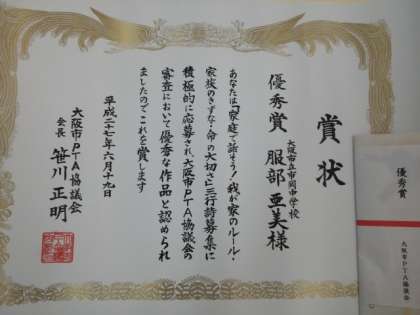 賞状
大阪市立市岡中学校
優秀賞 服部亜美様
あなたは「家庭で話そう!我が家のルール・
家族のきずな・命の大切さ」三行詩募集に
積極的に応募され、大阪市PTA協議会の
審査において優秀な作品と認められ
ましたのでこれを賞します
平成二十七年六月十九日
大阪市PTA協議会
会長 笹川正明
優秀賞
大阪市PTA協議会